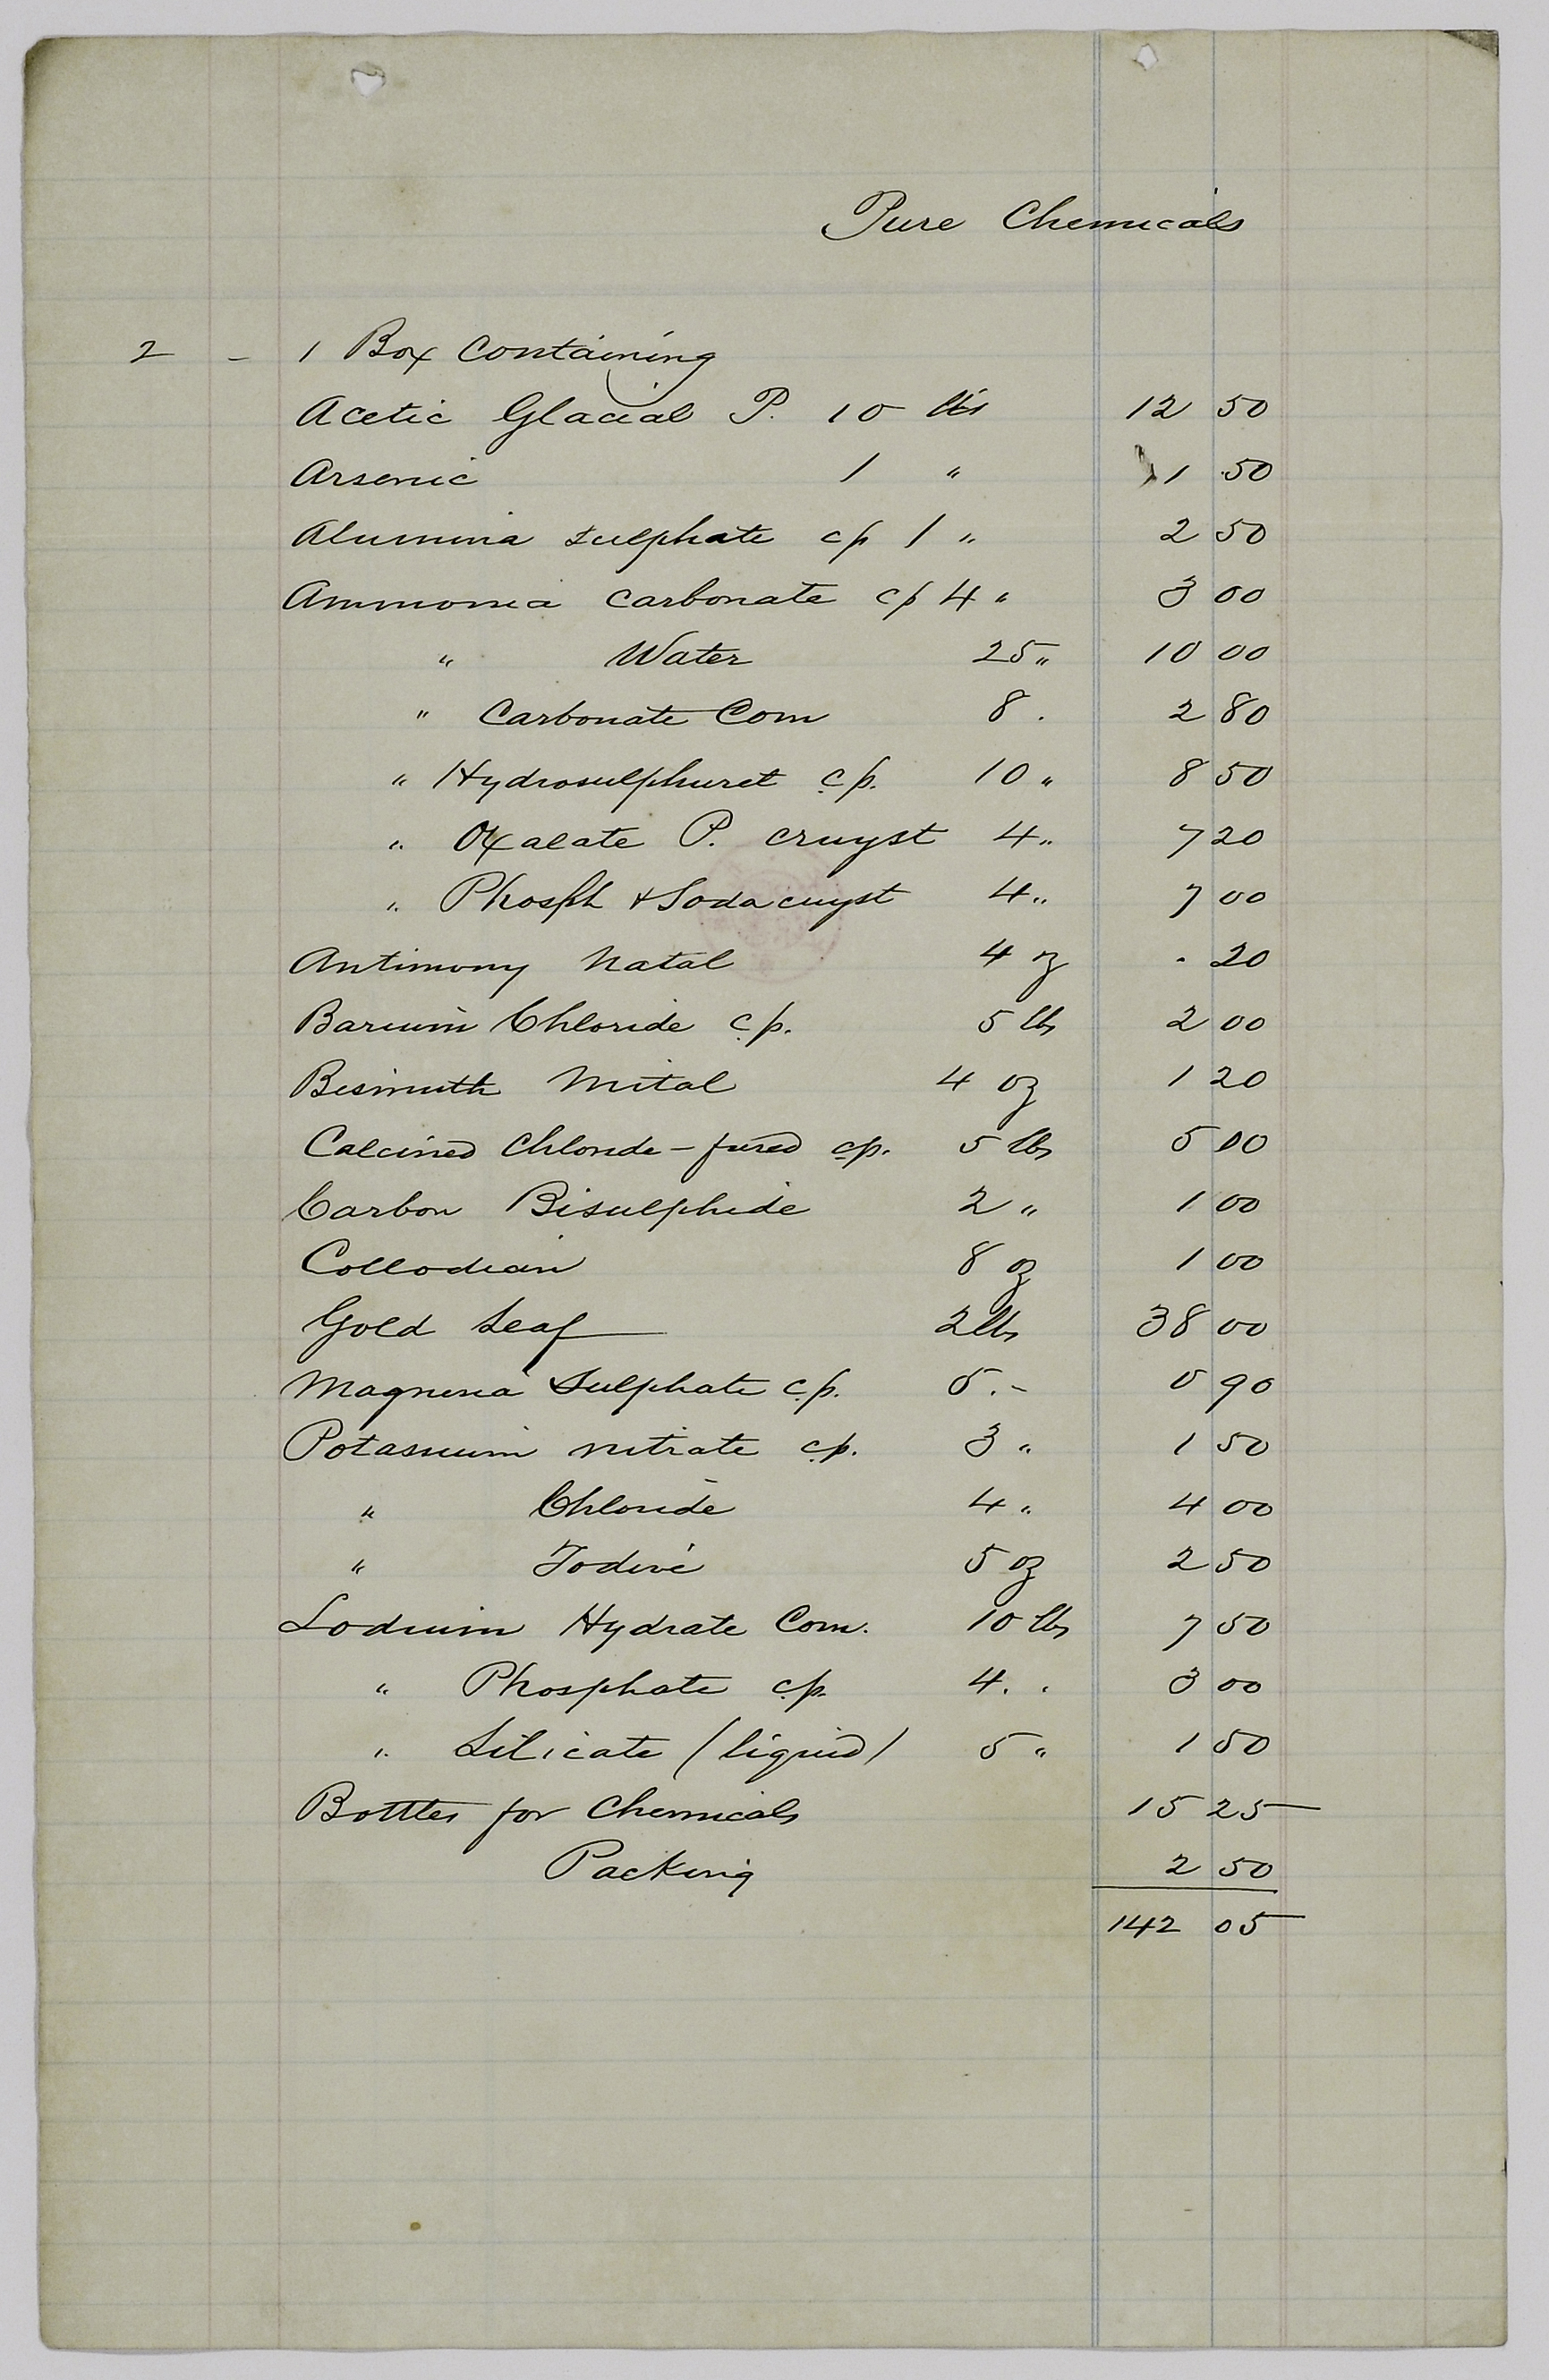 Pure Chemicals
2 - 1 Box Containing
Acetic Glacial P. 10 lbs 12 50
Arsenic 1 " 1 50
Alumina Sulphate cp 1 " 2 50
Ammonia Carbonate cp 4 " 3 00
" Water 25 " 10 00
" Carbonate Com 8 . 2 80
" Hydrosulphuret c.p. 10 " 8 50
" Oxalate P. cruyst 4 " 7 20
" Phosph & Soda cuyst 4 " 7 00
Antimony Natal 4 oz . 20
Barium Chloride c.p. 5 lbs 2 00
Bismuth Mital 4 oz 1 20
Calcined Chloride - fused cp. 5 lbs 5 00
Carbon Bisulphide 2 " 1 00
Collodian 8 oz 1 00
Gold Leaf 2 lbs 38 00
Magnesia Sulphate c.p. 5 . - 0 90
Potassium nitrate c.p. 3 " 1 50
" Chloride 4 " 4 00
" Iodine 5 oz 2 50
Sodium Hydrate Com. 10 lbs 7 50
" Phosphate c.p. 4 . . 3 00
" Silicate (liquid) 5 " 1 50
Bottles for Chemicals 15 25
Packing 2 50
142 05